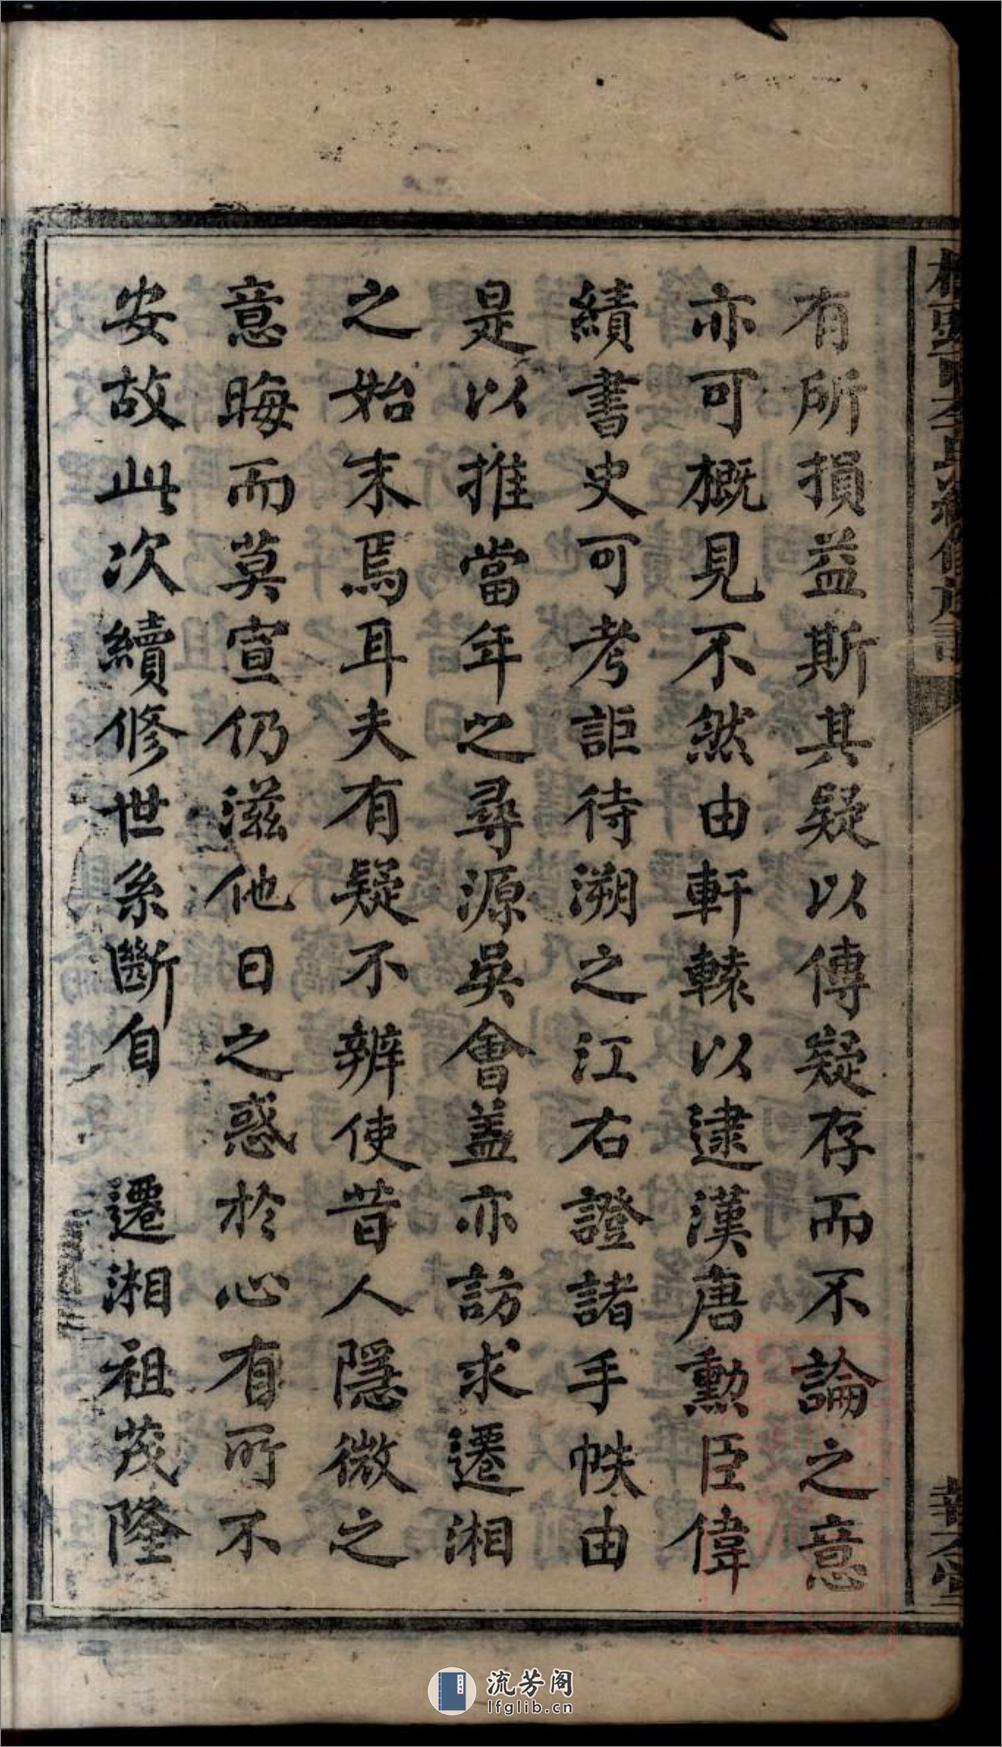 有所損益斯其疑以傳疑存而不論之意
亦可概見不然由軒轅以逮漢唐勳臣偉
績書史可考詎待溯之江右證諸手帙由
是以推當年之尋源吳會蓋亦訪求遷湘
之始末焉耳夫有疑不辨使昔人隱微之
意晦而莫宣仍滋他日之惑於心有所不
安故此次續修世系斷自　遷湘祖茂隆
流芳阁
lfglib.cn